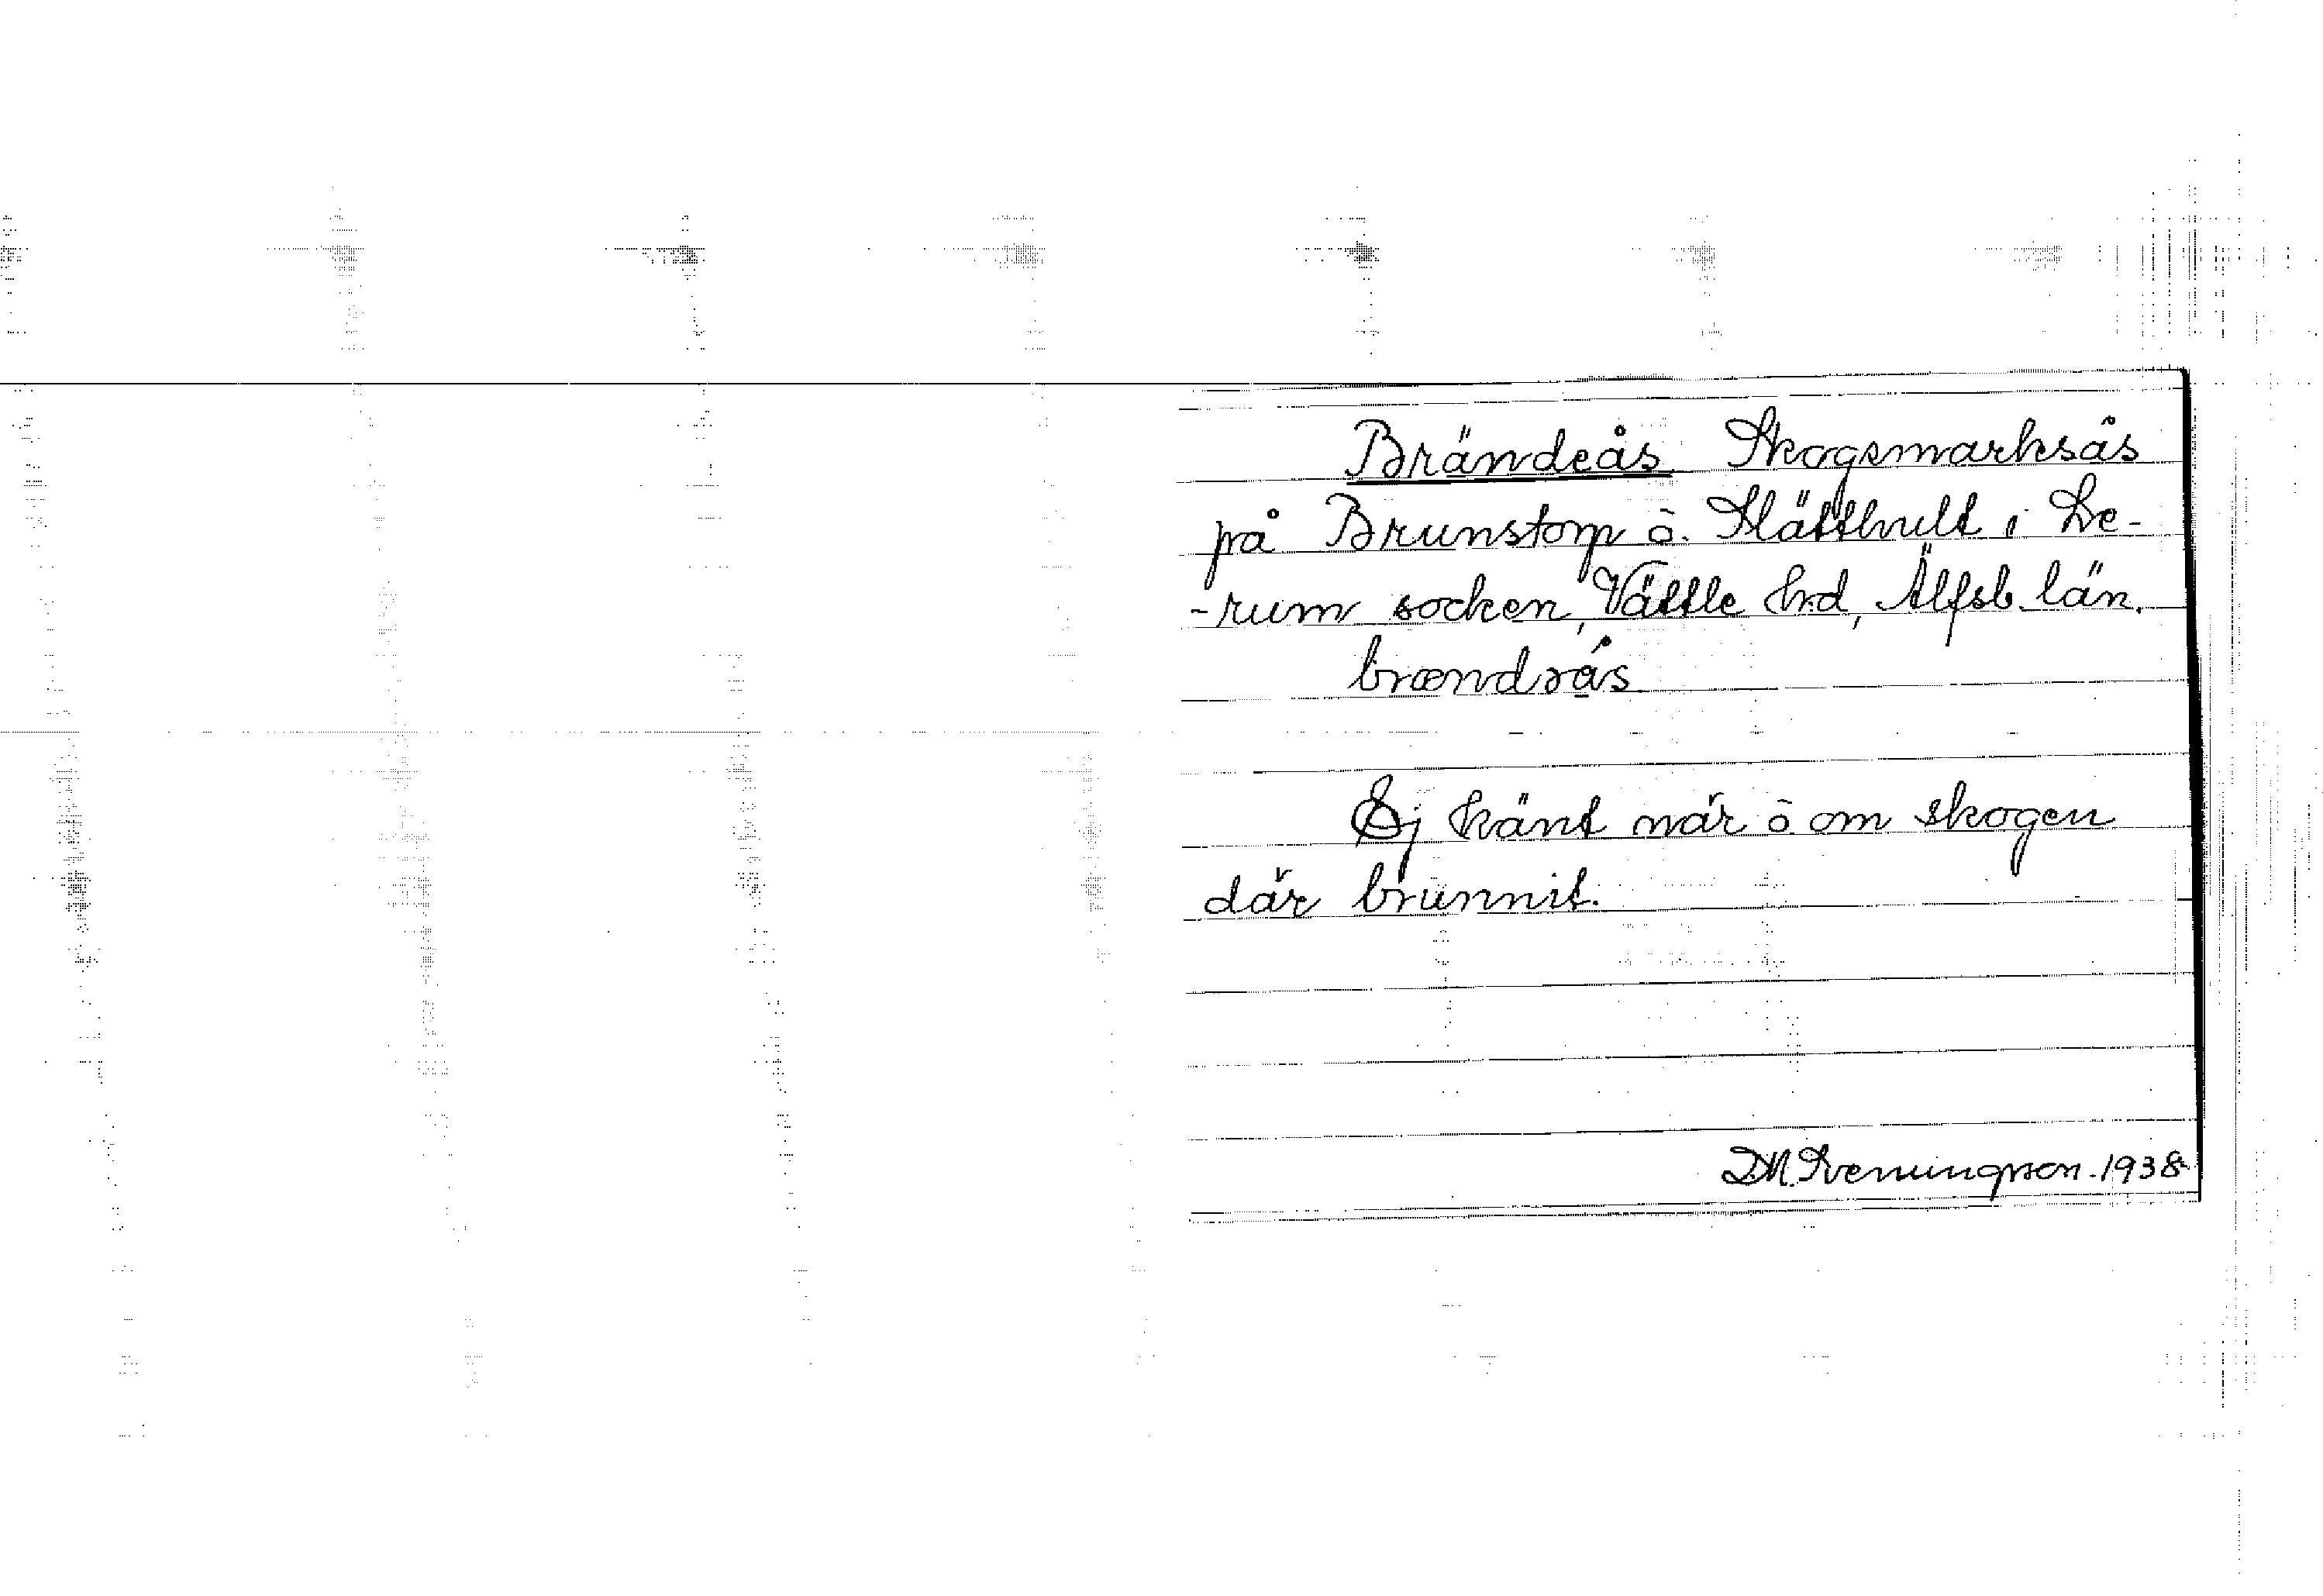 Brändeås Skogsmarksås
på Brunstorp ō. Slätthult i Le-
-rum socken, Vättle hrd, Älfsb. län.
brændrås
Ej känt när ō om skogen
där brunnit.
D.M. Sveningson. 1938